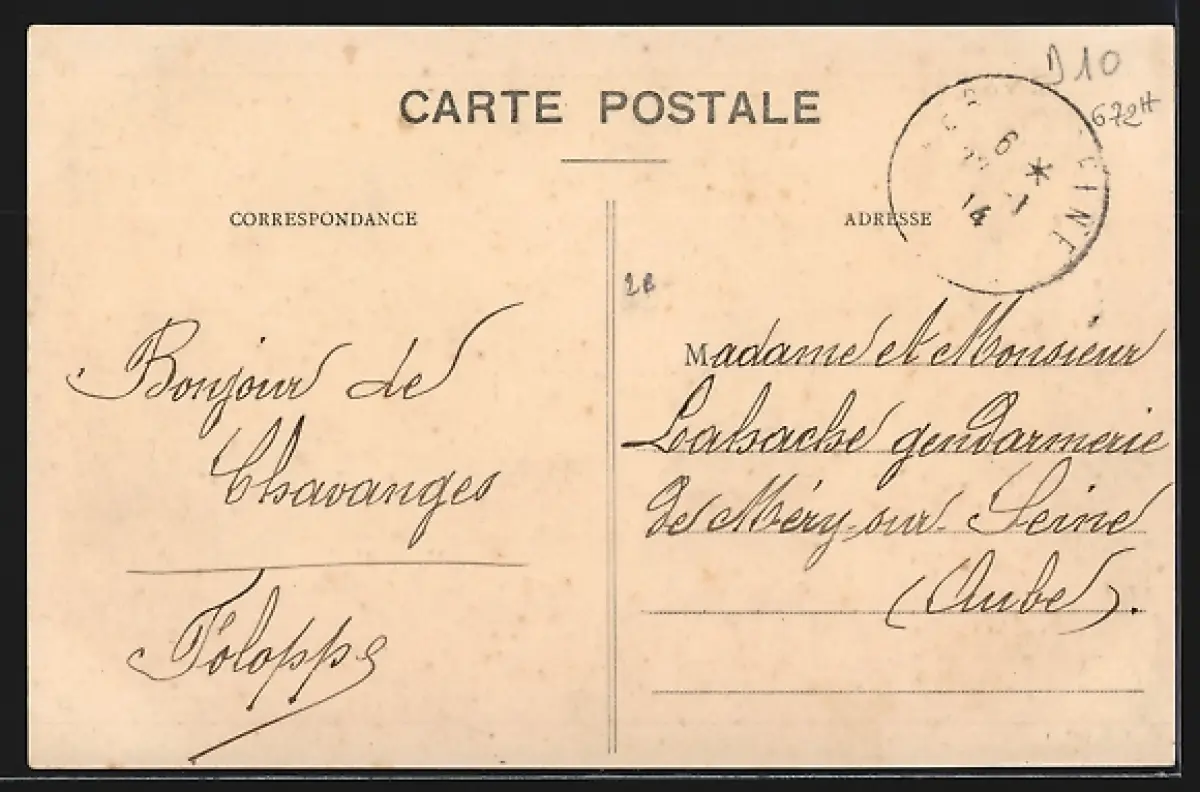 CARTE POSTALE
D10
672H
CORRESPONDANCE
ADRESSE
6 *
-1
14
EINE
2B
Bonjour de
Chavanges
Féloppé
Madame et Monsieur
Labache gendarmerie
de Méry-sur-Seine
(Aube).